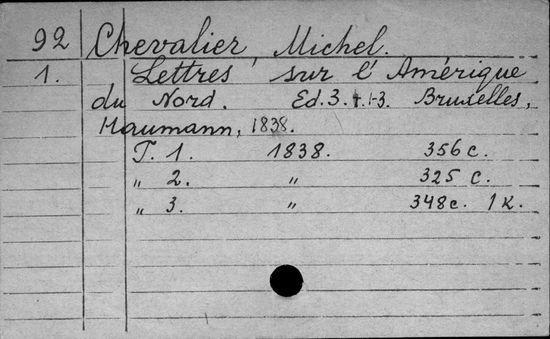 92 Chevalier, Michel.
1. Lettres sur l'Amérique
du Nord. Ed. 3. t. 1-3. Bruxelles,
Haumann, 1838.
T. 1. 1838. 356 c.
„ 2. „ 325 c.
„ 3. „ 348 c. 1 к.